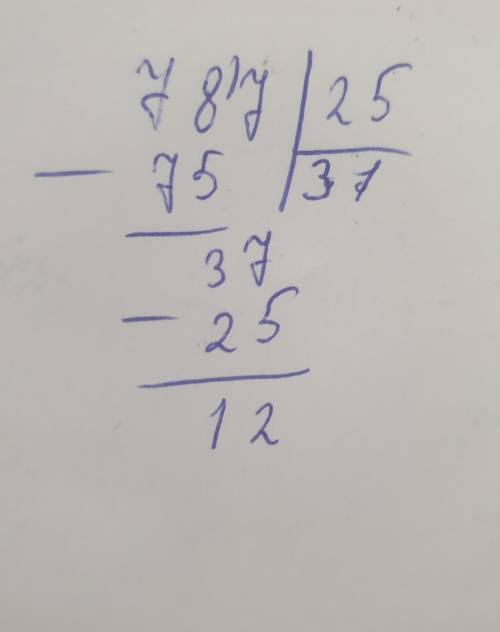 78'7 | 25
− 75 | 31
37
− 25
12